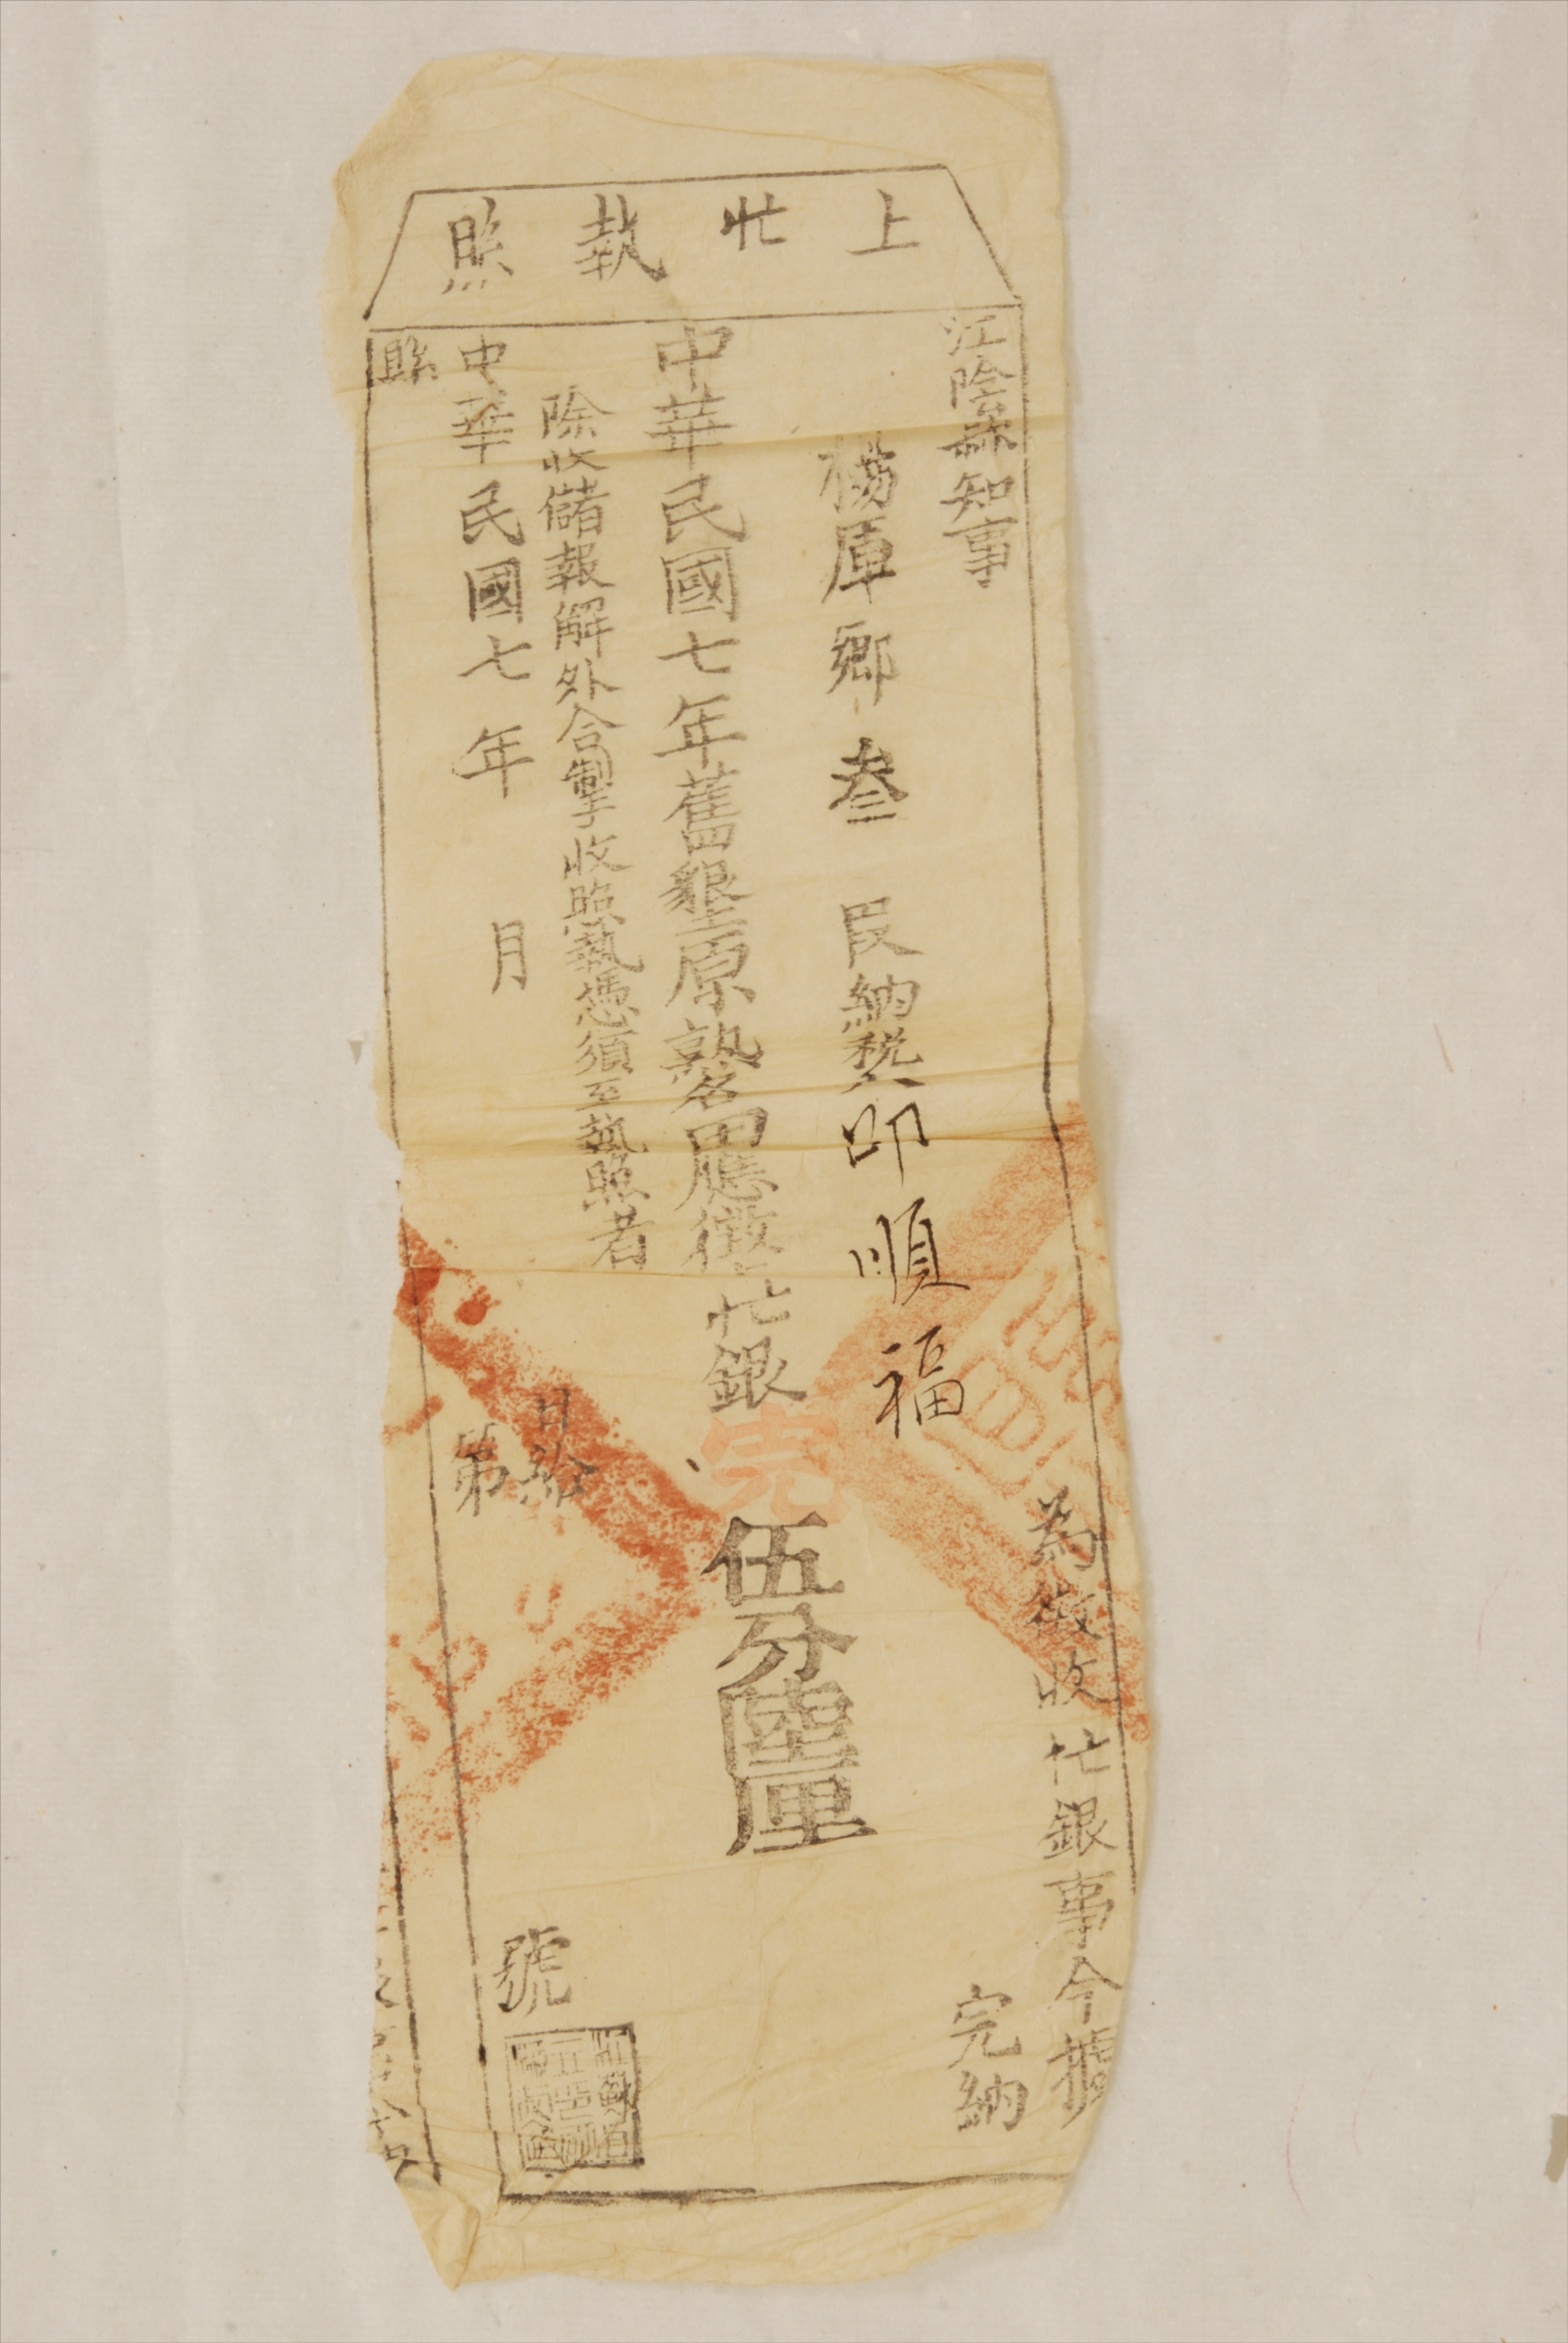 上忙執照
江陰縣知事 為徵收忙銀事今據
楊厙鄉叁 民納稅 印順福 完納
中華民國七年舊墾原熟各田應徵上忙銀 完 伍分陸厘
除收儲報解外合掣收照執憑須至執照者
中華民國七年 月 日給
縣 第 號